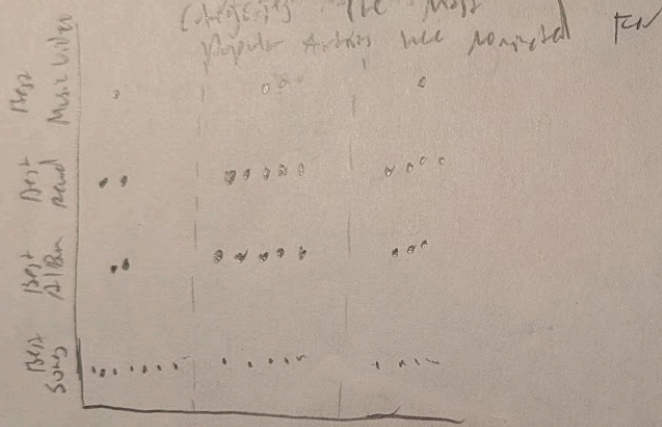 Categories the most
Popular Artists were nominated
Best
Music Video
Best
Best
Album
Best
Song